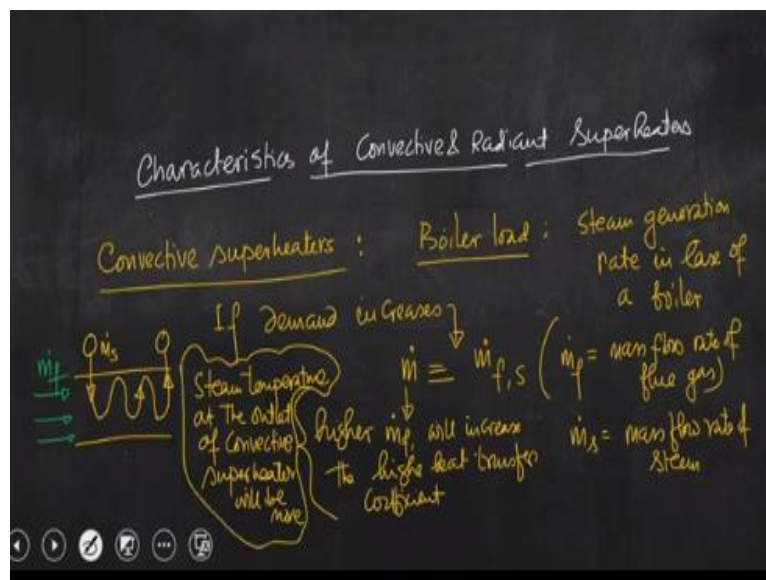 Characteristics of Convective & Radiant Superheaters
Convective superheaters :
Boiler load : Steam generation
rate in case of
a boiler
If demand increases
ṁf
ṁs
Steam temperature
at the outlet
of convective
superheater
will be
more
ṁ ≡ ṁf,s (ṁf = mass flow rate of
flue gas)
higher ṁf will increase
the highe heat transfer
coefficient
ṁs = mass flow rate of
steam